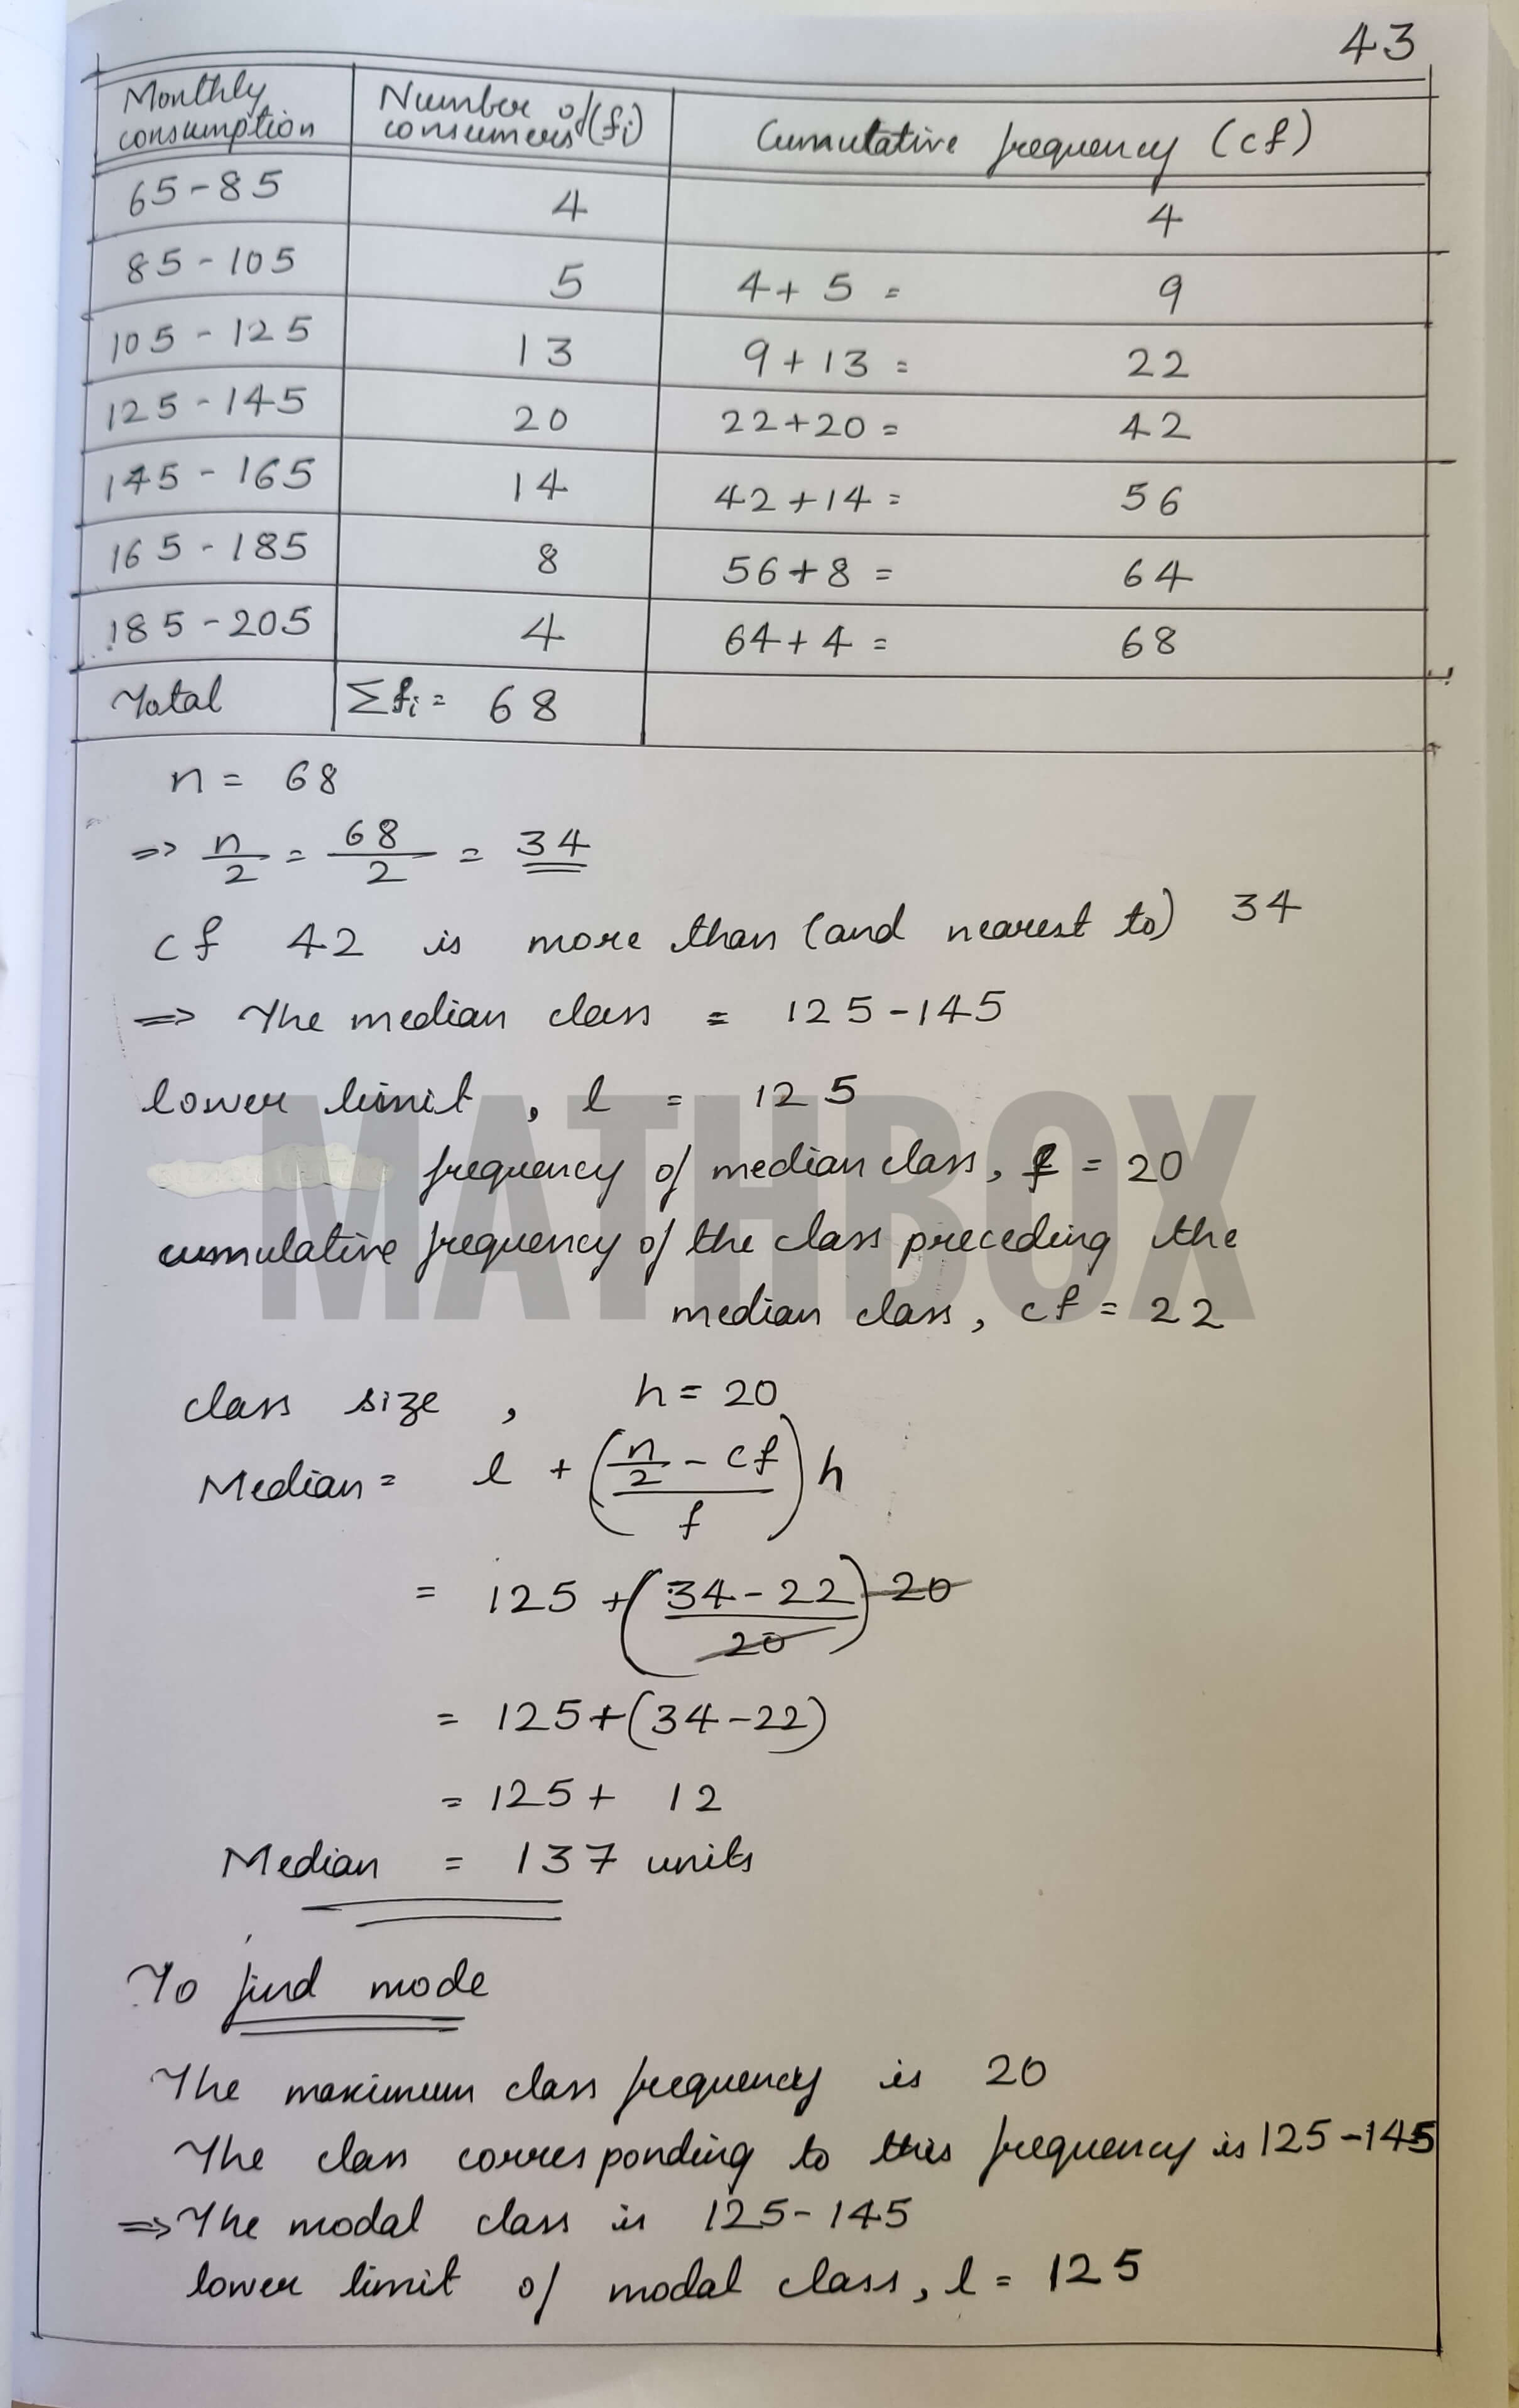 43
Monthly consumption | Number of consumers (fi) | Cumutative frequency (cf)
65-85 | 4 | 4
85-105 | 5 | 4+5 = 9
105-125 | 13 | 9+13 = 22
125-145 | 20 | 22+20 = 42
145-165 | 14 | 42+14 = 56
165-185 | 8 | 56+8 = 64
185-205 | 4 | 64+4 = 68
Total | Σfi = 68
n = 68
=> n/2 = 68/2 = 34
cf 42 is more than (and nearest to) 34
=> The median class = 125-145
lower limit, l = 125
frequency of median class, f = 20
cumulative frequency of the class preceding the
median class, cf = 22
MATHBOX
class size, h = 20
Median = l + ((n/2 - cf)/f) h
= 125 + ((34-22)/20) 20
= 125+(34-22)
= 125+ 12
Median = 137 units
To find mode
The maximum class frequency is 20
The class corresponding to this frequency is 125-145
=> The modal class is 125-145
lower limit of modal class, l = 125